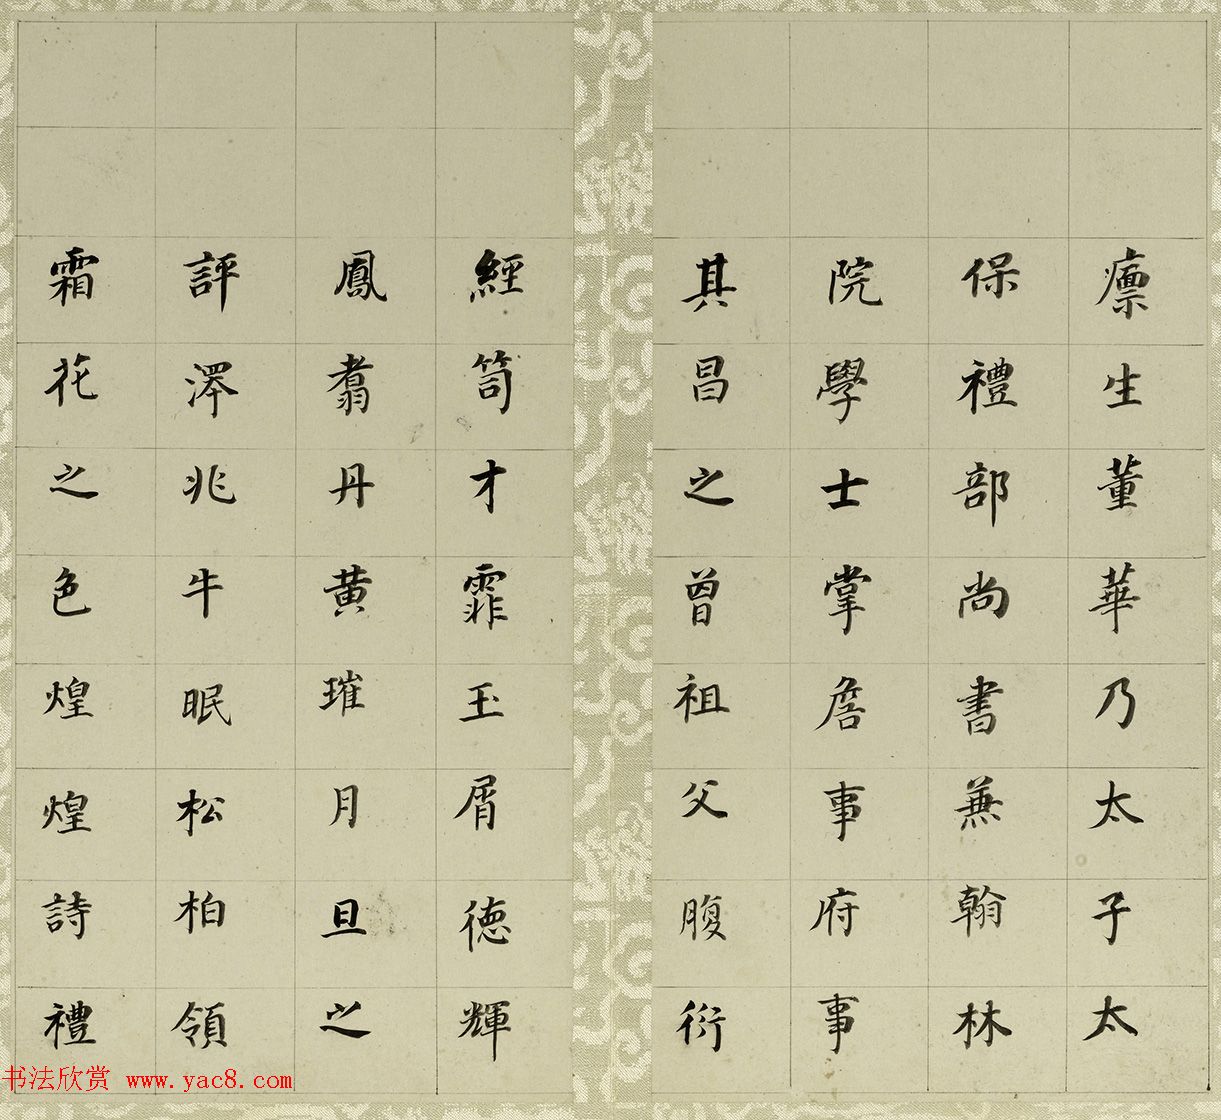 癝生董華乃太子太
保禮部尚書蕪翰林
院學士掌詹事府事
其昌之曾祖父腹衍
經笥才霏玉屑德輝
鳳翥丹黃璀月旦之
評澤兆牛眠松柏領
霜花之色煌煌詩禮
书法欣赏 www.yac8.com